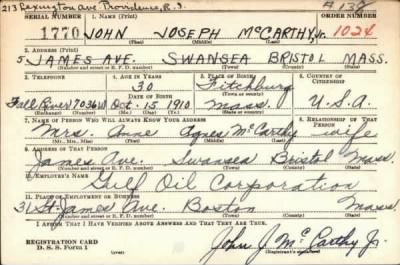 213 Lexington Ave Providence, R. I. # 138
SERIAL NUMBER 1. NAME (Print) 1024
1770 JOHN JOSEPH McCARTHY, Jr.
(First) (Middle) (Last)
2. ADDRESS (Print)
5 JAMES AVE. SWANSEA BRISTOL MASS.
(Number and street or R. F. D. number) (Town) (County) (State)
3. TELEPHONE 4. AGE IN YEARS 5. PLACE OF BIRTH 6. COUNTRY OF CITIZENSHIP
30 Fitchburg
DATE OF BIRTH (Town or county)
Fall River 7036W Oct. 15 1910 Mass. U.S.A.
(Exchange) (Number) (Mo.) (Day) (Yr.) (State or country)
7. NAME OF PERSON WHO WILL ALWAYS KNOW YOUR ADDRESS 8. RELATIONSHIP OF THAT PERSON
Mrs. Anne Agnes McCarthy wife
(Mr., Mrs., Miss) (First) (Middle) (Last)
9. ADDRESS OF THAT PERSON
James Ave. Swansea Bristol Mass.
(Number and street or R. F. D. number) (Town) (County) (State)
10. EMPLOYER'S NAME
Gulf Oil Corporation
11. PLACE OF EMPLOYMENT OR BUSINESS
31 St. James Ave. Boston Mass
(Number and street or R. F. D. number) (Town) (County) (State)
I AFFIRM THAT I HAVE VERIFIED ABOVE ANSWERS AND THAT THEY ARE TRUE.
REGISTRATION CARD
D. S. S. Form 1 John J. McCarthy Jr.